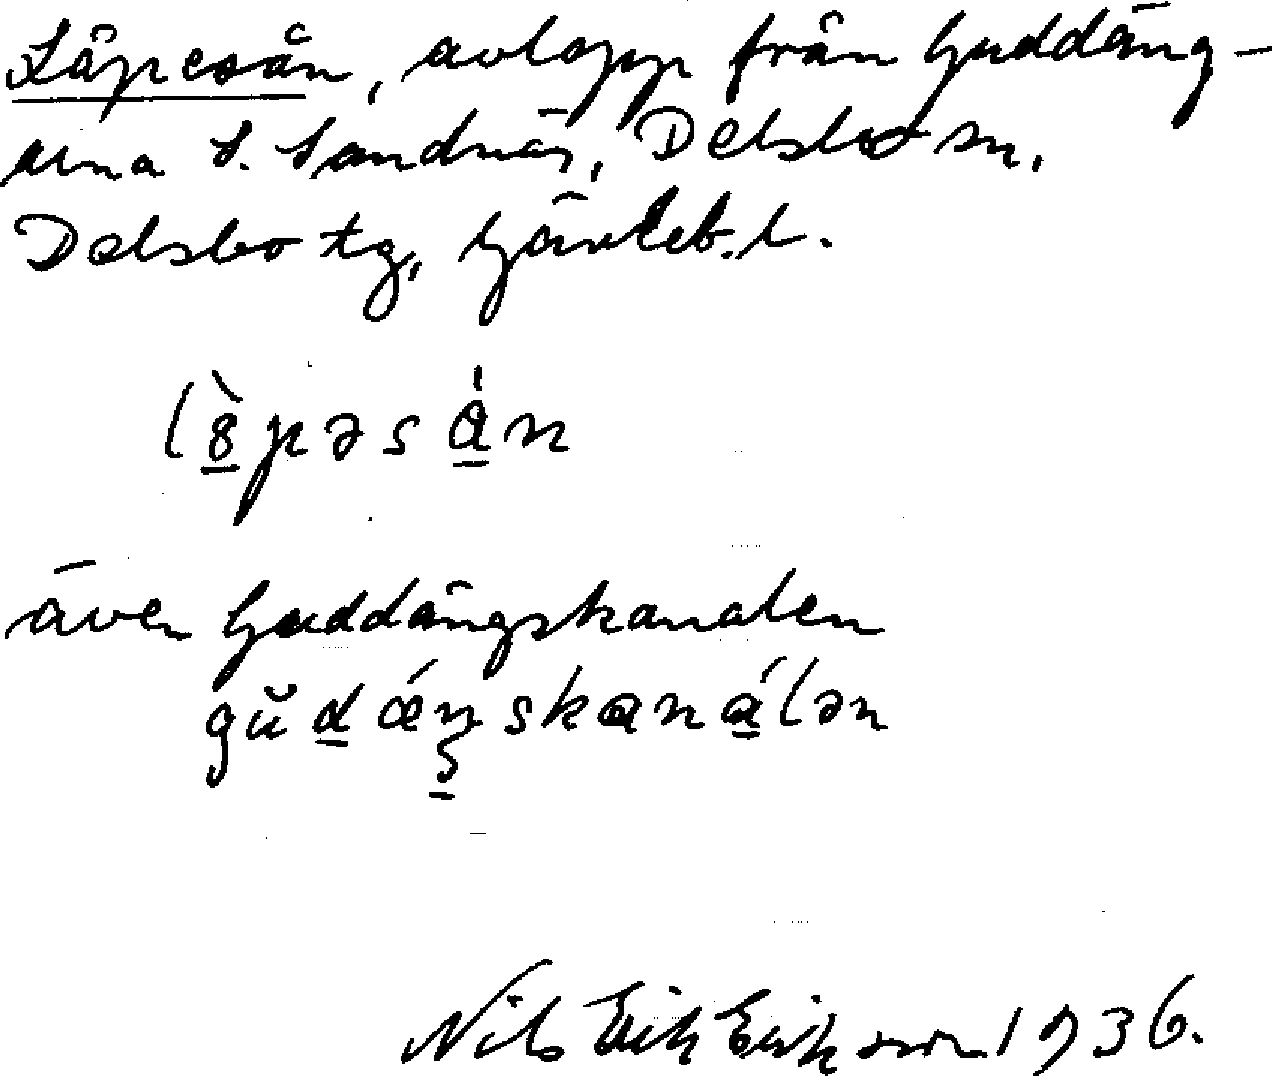 Läpesån, avlopp från Guddäng-
arna S. Sandnäs, Delsbo sn,
Delsbo tg, Gävleb. l.
lɞ̀pəsán
även Guddängskanalen
gŭdǽŋskanálən
Nils Erik Eriksson 1936.